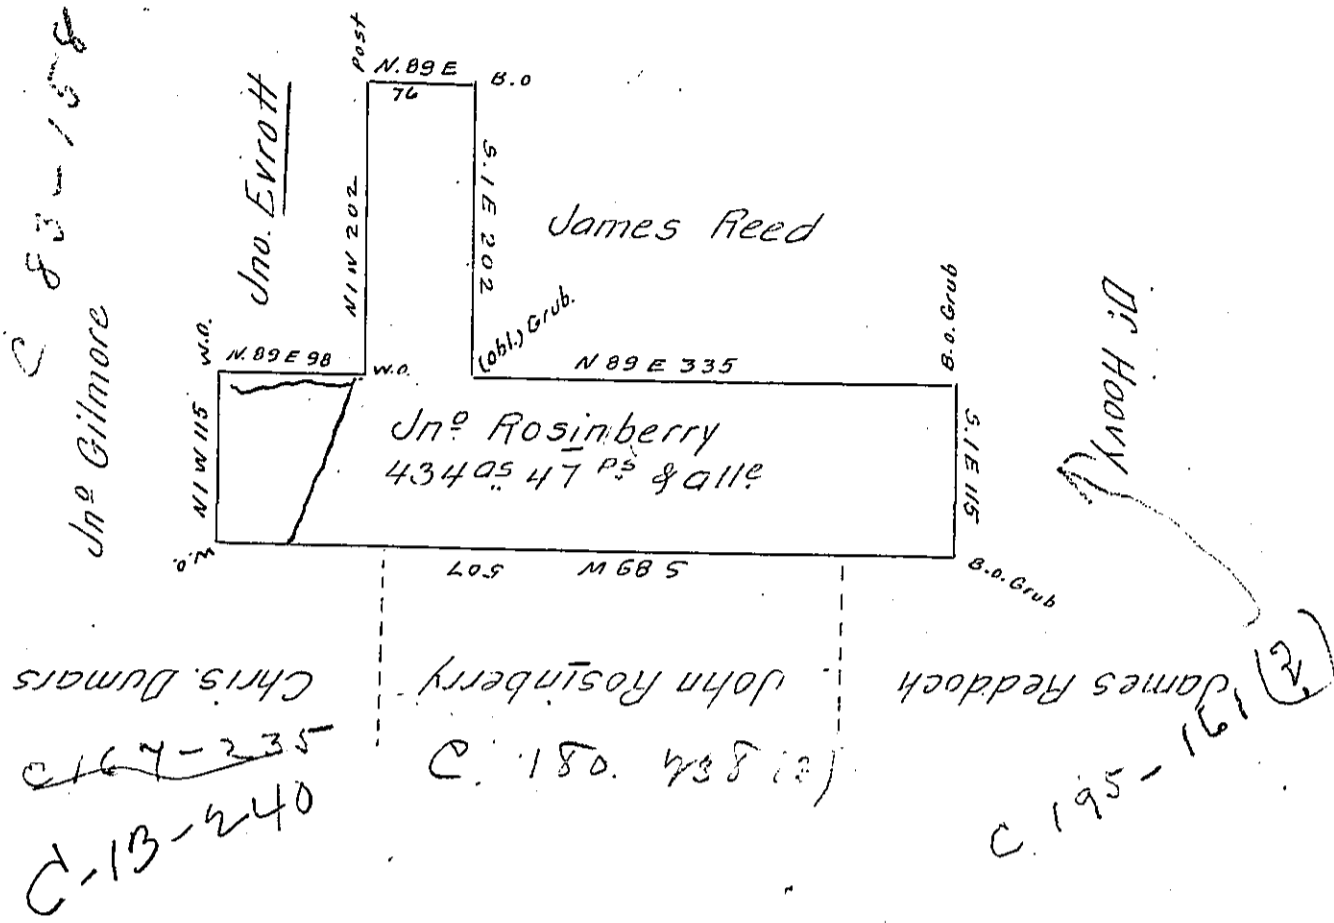 C 83-158
Jnº Gilmore
Jno. Evrott
Post
N. 89 E
76
B.O
N 1 W 202
S. 1 E 202
James Reed
(obl.) Grub.
W.O.
N. 89 E 98
W.O.
N 89 E 335
B.O. Grub
Dr. Hoovy
N 1 W 115
Jnº Rosinberry
434 as 47 ps & alle
S. 1 E 115
W.O.
S 89 W 507
B.O. Grub
Chris. Dumars
John Rosinberry
James Reddock
C 167-235
C. 180.
C. 195-161 (2)
C-13-240